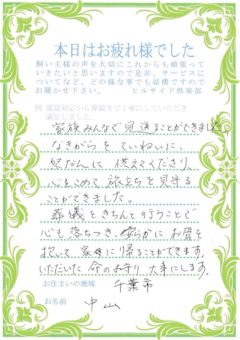 本日はお疲れ様でした
飼い主様の声を大切にこれからも頑張って
いきたいと思いますので是非、サービスに
ついてなど、どの様な事でも結構ですので
お聞かせ下さい。 ヒルサイド倶楽部
電話対応から葬儀まで丁寧にしていただき
満足しました。
家族みんなで見送ることができました。
なきがらを ていねいに、
祭だんに 供えてくださり、
心をこめて 旅立ちを見守る
ことができました。
葬儀をきちんと行うことで
心も落ちつき、安らかに お骨を
抱いて 家に帰ることができます。
いただいた 命のお守り 大事にします。
お住まいの地域 千葉市
お名前 中山